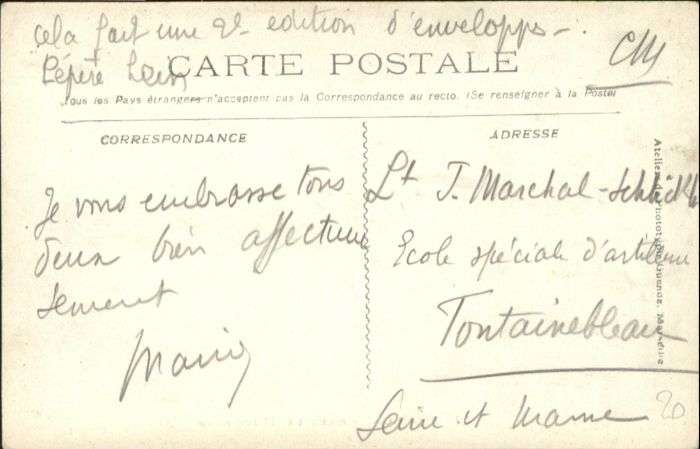 cela fait une 2e edition d'envelopps -
Pépère
CM
CARTE POSTALE
Tous les Pays étrangers n'acceptent pas la Correspondance au recto. (Se renseigner à la Poste)
CORRESPONDANCE
Je vous embrasse tous
deux bien affectueu
sement
ADRESSE
Lt J. Marchal-
Ecole spéciale d'artillerie
Fontainebleau
Seine et Marne
20
Marseille